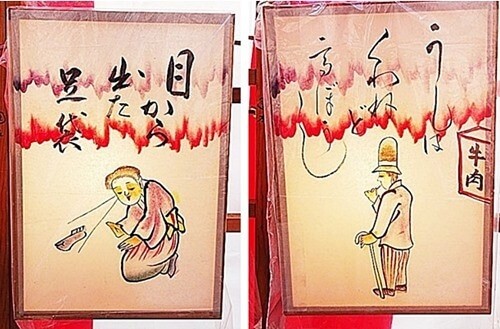 目から
出た
足袋
うしは
くわねど
高ぼうし
牛肉